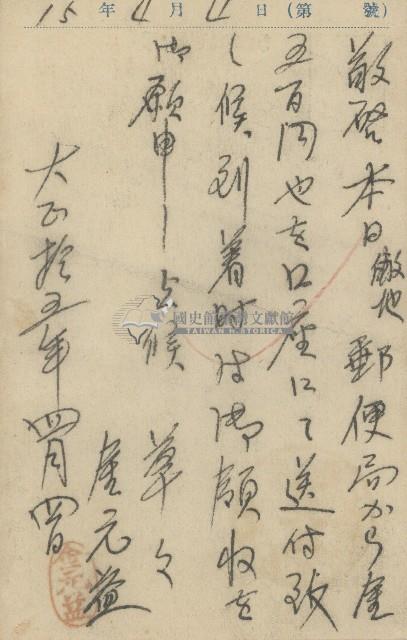 15 年 4 月 4 日 (第 號)
敬啓本日敝地郵便局から金
五百円也を口座にて送付致
し候到着時は御領收を
御願申し上候 草々
大正拾五年四月四日
元益
國史館臺灣文獻館
TAIWAN HISTORICA